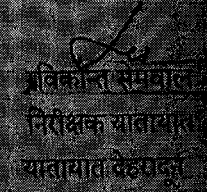 रविकान्त सेमवाल
निरीक्षक यातायात
यातायात देहरादून